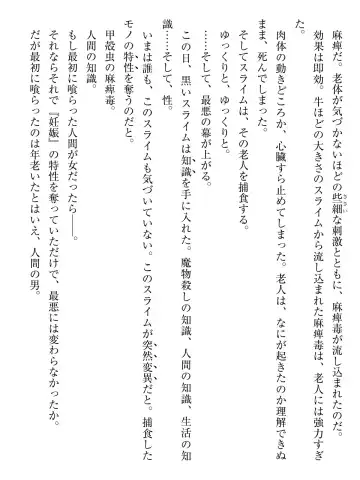 麻痺だ。老体が気づかないほどの些細な刺激とともに、麻痺毒が流し込まれたのだ。
効果は即効。牛ほどの大きさのスライムから流し込まれた麻痺毒は、老人には強力すぎ
た。
肉体の動きどころか、心臓すら止めてしまった。老人は、なにが起きたのか理解できぬ
まま、死んでしまった。
そしてスライムは、その老人を捕食する。
ゆっくりと、ゆっくりと。
……そして、最悪の幕が上がる。
この日、黒いスライムは知識を手に入れた。魔物殺しの知識、人間の知識、生活の知
識……そして、性。
いまは誰も、このスライムも気づいていない。このスライムが突然変異だと。捕食した
モノの特性を奪うのだと。
甲殻虫の麻痺毒。
人間の知識。
もし最初に喰らった人間が女だったら――。
それならそれで『妊娠』の特性を奪っていただけで、最悪には変わらなかったか。
だが最初に喰らったのは年老いたとはいえ、人間の男。